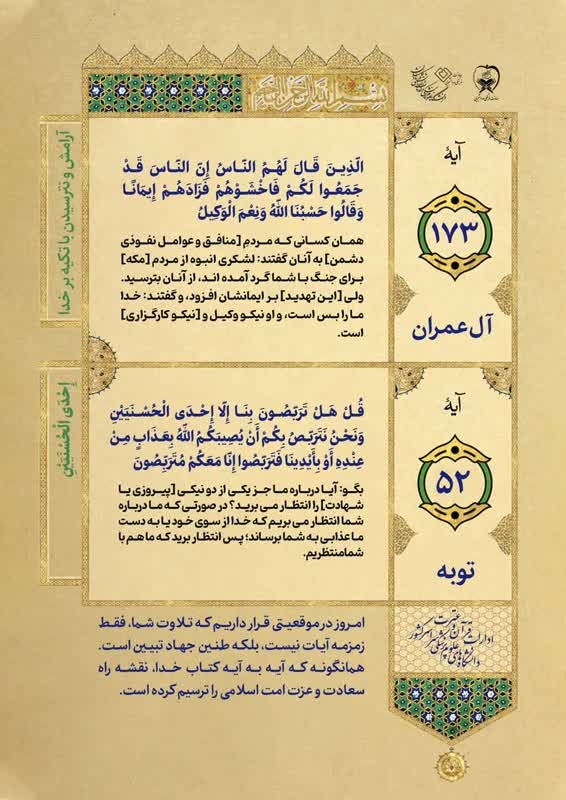 بسم الله الرحمن الرحیم
آرامش و نترسیدن با تکیه بر خدا
آیهٔ
۱۷۳
آل‌عمران
الَّذِينَ قَالَ لَهُمُ النَّاسُ إِنَّ النَّاسَ قَدْ
جَمَعُوا لَكُمْ فَاخْشَوْهُمْ فَزَادَهُمْ إِيمَانًا
وَقَالُوا حَسْبُنَا اللَّهُ وَنِعْمَ الْوَكِيلُ
همان کسانی که مردمِ [منافق و عوامل نفوذی
دشمن] به آنان گفتند: لشکری انبوه از مردم [مکه]
برای جنگ با شما گرد آمده اند، از آنان بترسید.
ولی [این تهدید] بر ایمانشان افزود، و گفتند: خدا
ما را بس است، و او نیکو وکیل و [نیکو کارگزاری]
است.
إِحْدَى الْحُسْنَيَيْنِ
آیهٔ
۵۲
توبه
قُلْ هَلْ تَرَبَّصُونَ بِنَا إِلَّا إِحْدَى الْحُسْنَيَيْنِ
وَنَحْنُ نَتَرَبَّصُ بِكُمْ أَنْ يُصِيبَكُمُ اللَّهُ بِعَذَابٍ مِنْ
عِنْدِهِ أَوْ بِأَيْدِينَا فَتَرَبَّصُوا إِنَّا مَعَكُمْ مُتَرَبِّصُونَ
بگو: آیا درباره ما جز یکی از دو نیکی [پیروزی یا
شهادت] را انتظار می برید؟ در صورتی که ما درباره
شما انتظار می بریم که خدا از سوی خود یا به دست
ما عذابی به شما برساند؛ پس انتظار برید که ما هم با
شما منتظریم.
امروز در موقعیتی قرار داریم که تلاوت شما، فقط
زمزمه آیات نیست، بلکه طنین جهاد تبیین است.
همانگونه که آیه به آیه کتاب خدا، نقشه راه
سعادت و عزت امت اسلامی را ترسیم کرده است.
ادارات قرآن و عترت
دانشگاه‌های علوم پزشکی سراسر کشور